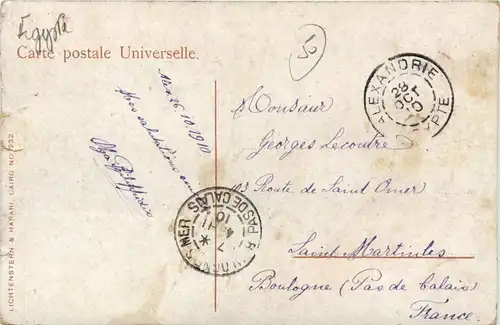 Egypte
Carte postale Universelle.
Alex. 26.10.1910
Mes salutations
Olga
Monsieur
Georges Lecoutre
103 Route de Saint Omer
Saint Martin les
Boulogne (Pas de Calais)
France.
ALEXANDRIE
28
OCT
PAS DE CALAIS
MER
7
4-11
10
LICHTENSTERN & HARARI, CAIRO NO. 232